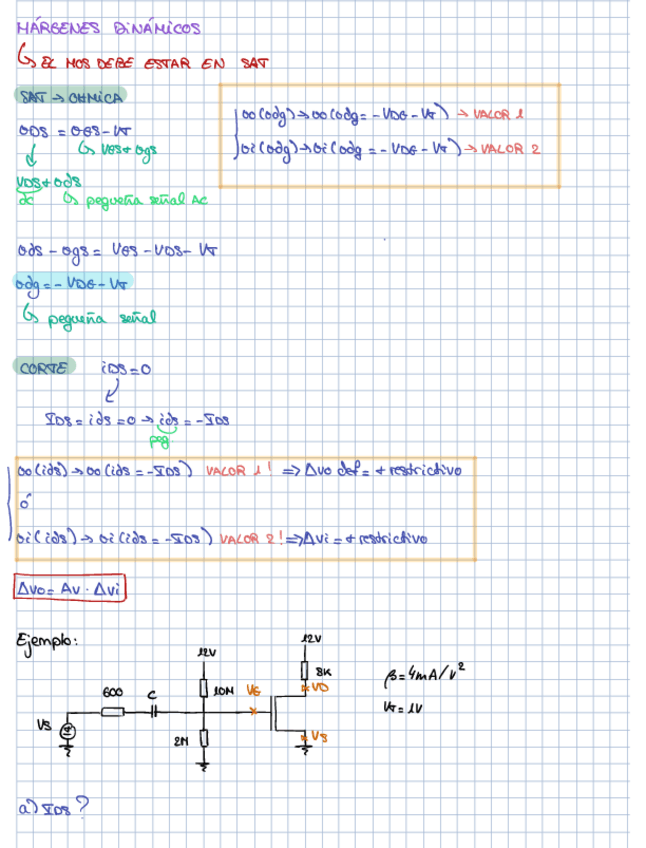 MÁRGENES DINÁMICOS
↳ EL MOS DEBE ESTAR EN SAT
SAT → OHMICA
vDS = vGS - VT
↳ VGS + vgs
VDS + vds
dc ↳ pequeña señal AC
vo(vdg) → vo(vdg = -VDG - VT) → VALOR 1
vi(vdg) → vi(vdg = -VDG - VT) → VALOR 2
vds - vgs = VGS - VDS - VT
vdg = - VDG - VT
↳ pequeña señal
CORTE iDS = 0
IDS = ids = 0 → ids = - IDS
peq
vo(ids) → vo(ids = -IDS) VALOR 1! ⇒ Δvo def = + restrictivo
ó
vi(ids) → vi(ids = -IDS) VALOR 2! ⇒ Δvi = + restrictivo
Δvo = Av · Δvi
Ejemplo:
12V
12V
8K
β = 4mA/V²
600
C
10M
VG
VD
VT = 1V
VS
2M
VS
a) IDS?